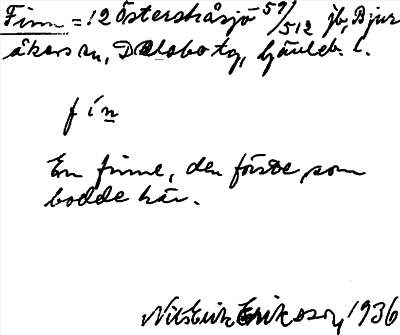 Finn = 12 Österskåsjö 57/512 jb, Bjur
åkers sn, Delsbo tg, Gävleb. l.
fín
En finne, den första som
bodde här.
Nils Erik Eriksson, 1936